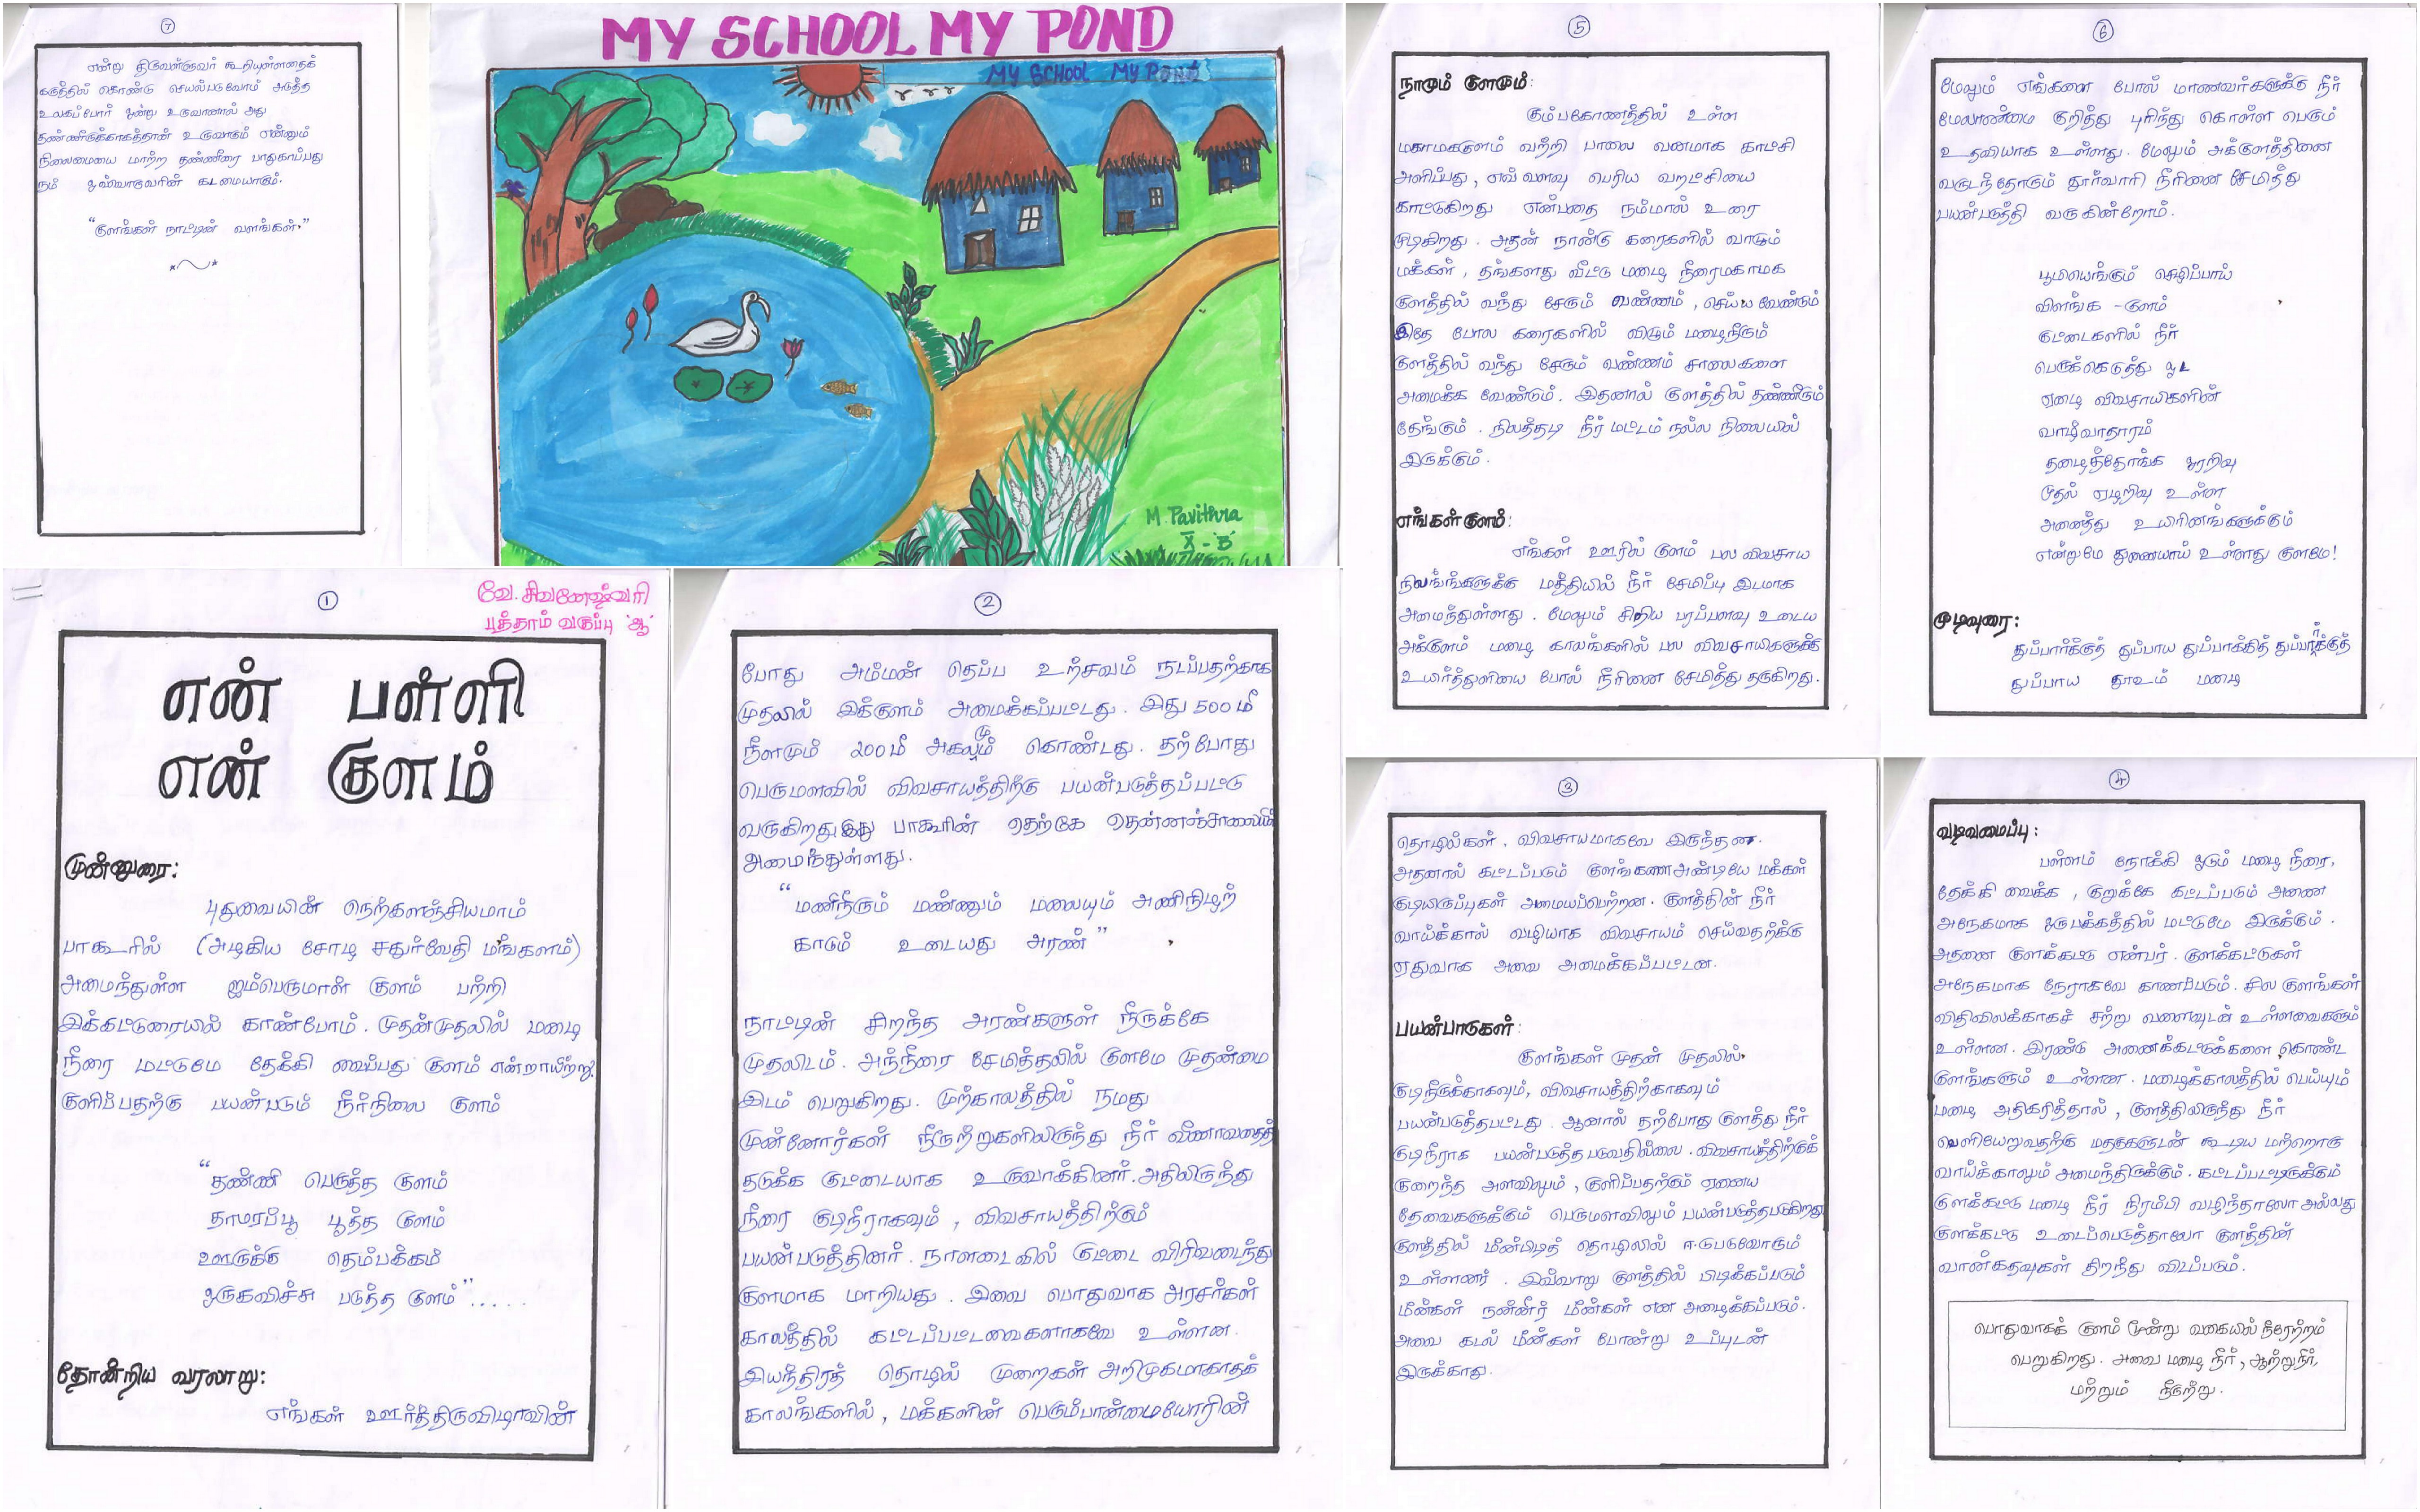 MY SCHOOL MY POND
MY SCHOOL MY POND
M. Pavithra
X - 'B'
①
வே. சிவனேஷ்வரி
பத்தாம் வகுப்பு 'ஆ'
என் பள்ளி
என் குளம்
முன்னுரை:
புதுவையின் நெற்களஞ்சியமாம்
பாகூரில் (அழகிய சோழ சதுர்வேதி மங்களம்)
அமைந்துள்ள ஐம்பெருமான் குளம் பற்றி
இக்கட்டுரையில் காண்போம். முதன்முதலில் மழை
நீரை மட்டுமே தேக்கி வைப்பது குளம் என்றாயிற்று.
குளிப்பதற்கு பயன்படும் நீர்நிலை குளம்
"தண்ணி பெருத்த குளம்
தாமரப்பூ பூத்த குளம்
ஊருக்கு தெம்பக்கம்
ஒருகவிச்சு படுத்த குளம்".....
தோன்றிய வரலாறு:
எங்கள் ஊர்த்திருவிழாவின்
②
போது அம்மன் தெப்ப உற்சவம் நடப்பதற்காக
முதலில் இக்குளம் அமைக்கப்பட்டது. இது 500 மீ
நீளமும் 200 மீ அகலமும் கொண்டது. தற்போது
பெருமளவில் விவசாயத்திற்கு பயன்படுத்தப்பட்டு
வருகிறது. இது பாகூரின் தெற்கே தென்னஞ்சாலையில்
அமைந்துள்ளது.
"மணிநீரும் மண்ணும் மலையும் அணிநிழற்
காடும் உடையது அரண்"
நாட்டின் சிறந்த அரண்களுள் நீருக்கே
முதலிடம். அந்நீரை சேமித்தலில் குளமே முதன்மை
இடம் பெறுகிறது. முற்காலத்தில் நமது
முன்னோர்கள் நீருற்றுகளிலிருந்து நீர் வீணாவதைத்
தடுக்க குட்டையாக உருவாக்கினர். அதிலிருந்து
நீரை குடிநீராகவும், விவசாயத்திற்கும்
பயன்படுத்தினர். நாளடைவில் குட்டை விரிவடைந்து
குளமாக மாறியது. இவை பொதுவாக அரசர்கள்
காலத்தில் கட்டப்பட்டவைகளாகவே உள்ளன.
இயந்திரத் தொழில் முறைகள் அறிமுகமாகாதக்
காலங்களில், மக்களின் பெரும்பான்மையோரின்
③
தொழில்கள், விவசாயமாகவே இருந்தன.
அதனால் கட்டப்படும் குளங்களை அண்டியே மக்கள்
குடியிருப்புகள் அமையப்பெற்றன. குளத்தின் நீர்
வாய்க்கால் வழியாக விவசாயம் செய்வதற்க்கு
ஏதுவாக அவை அமைக்கப்பட்டன.
பயன்பாடுகள்:
குளங்கள் முதன் முதலில்
குடிநீருக்காகவும், விவசாயத்திற்காகவும்
பயன்படுத்தபட்டது. ஆனால் தற்போது குளத்து நீர்
குடிநீராக பயன்படுத்த படுவதில்லை. விவசாயத்திற்குக்
குறைந்த அளவிலும், குளிப்பதற்கும் ஏனைய
தேவைகளுக்கும் பெருமளவிலும் பயன்படுத்தபடுகிறது
குளத்தில் மீன்பிடித் தொழிலில் ஈடுபடுவோரும்
உள்ளனர். இவ்வாறு குளத்தில் பிடிக்கப்படும்
மீன்கள் நன்னீர் மீன்கள் என அழைக்கப்படும்.
அவை கடல் மீன்கள் போன்று உப்புடன்
இருக்காது.
④
வடிவமைப்பு:
பள்ளம் நோக்கி ஓடும் மழை நீரை,
தேக்கி வைக்க, குறுக்கே கட்டப்படும் அணை
அநேகமாக ஒருபக்கத்தில் மட்டுமே இருக்கும்.
அதனை குளக்கட்டு என்பர். குளக்கட்டுகள்
அநேகமாக நேராகவே காணப்படும். சில குளங்கள்
விதிவிலக்காகச் சற்று வளைவுடன் உள்ளவைகளும்
உள்ளன. இரண்டு அணைக்கட்டுக்களை கொண்ட
குளங்களும் உள்ளன. மழைக்காலத்தில் பெய்யும்
மழை அதிகரித்தால், குளத்திலிருந்து நீர்
வெளியேறுவதற்கு மதகுகளுடன் கூடிய மற்றொரு
வாய்க்காலும் அமைந்திருக்கும். கட்டப்பட்டிருக்கும்
குளக்கட்டு மழை நீர் நிரம்பி வழிந்தாலோ அல்லது
குளக்கட்டு உடைப்பெடுத்தாலோ குளத்தின்
வான்கதவுகள் திறந்து விடப்படும்.
பொதுவாகக் குளம் மூன்று வகையில் நீரேற்றம்
பெறுகிறது. அவை மழை நீர், ஆற்றுநீர்,
மற்றும் நீரூற்று.
⑤
நாமும் குளமும்:
கும்பகோணத்தில் உள்ள
மகாமககுளம் வற்றி பாலை வனமாக காட்சி
அளிப்பது, எவ்வளவு பெரிய வறட்சியை
காட்டுகிறது என்பதை நம்மால் உரை
முடிகிறது. அதன் நான்கு கரைகளில் வாழும்
மக்கள், தங்களது வீட்டு மழை நீரைமகாமக
குளத்தில் வந்து சேரும் வண்ணம், செய்ய வேண்டும்
இதே போல கரைகளில் விழும் மழைநீரும்
குளத்தில் வந்து சேரும் வண்ணம் சாலைகளை
அமைக்க வேண்டும். இதனால் குளத்தில் தண்ணீரும்
தேங்கும். நிலத்தடி நீர் மட்டம் நல்ல நிலையில்
இருக்கும்.
எங்கள் குளம்:
எங்கள் ஊரில் குளம் பல விவசாய
நிலங்களுக்கு மத்தியில் நீர் சேமிப்பு இடமாக
அமைந்துள்ளது. மேலும் சிறிய பரப்பளவு உடைய
அக்குளம் மழை காலங்களில் பல விவசாயிகளுக்கு
உயிர்த்துளியை போல் நீரினை சேமித்து தருகிறது.
⑥
மேலும் எங்களை போல் மாணவர்களுக்கு நீர்
மேலாண்மை குறித்து புரிந்து கொள்ள பெரும்
உதவியாக உள்ளது. மேலும் அக்குளத்தினை
வருடந்தோரும் தூர்வாரி நீரினை சேமித்து
பயன்படுத்தி வருகின்றோம்.
பூமியெங்கும் செழிப்பாய்
விளங்க - குளம்
குட்டைகளில் நீர்
பெருக்கெடுத்து ஓட
ஏழை விவசாயிகளின்
வாழ்வாதாரம்
தழைத்தோங்க ஓரறிவு
முதல் ஏழறிவு உள்ள
அனைத்து உயிரினங்களுக்கும்
என்றுமே துணையாய் உள்ளது குளமே!
முடிவுரை:
துப்பார்க்குத் துப்பாய துப்பாக்கித் துப்பார்க்குத்
துப்பாய தூஉம் மழை
⑦
என்று திருவள்ளுவர் கூறியுள்ளதைக்
கருத்தில் கொண்டு செயல்படுவோம் அடுத்த
உலகப்போர் ஒன்று உருவானால் அது
தண்ணீருக்காகத்தான் உருவாகும் என்னும்
நிலைமையை மாற்ற தண்ணீரை பாதுகாப்பது
நம் ஒவ்வொருவரின் கடமையாகும்.
"குளங்கள் நாட்டின் வளங்கள்."